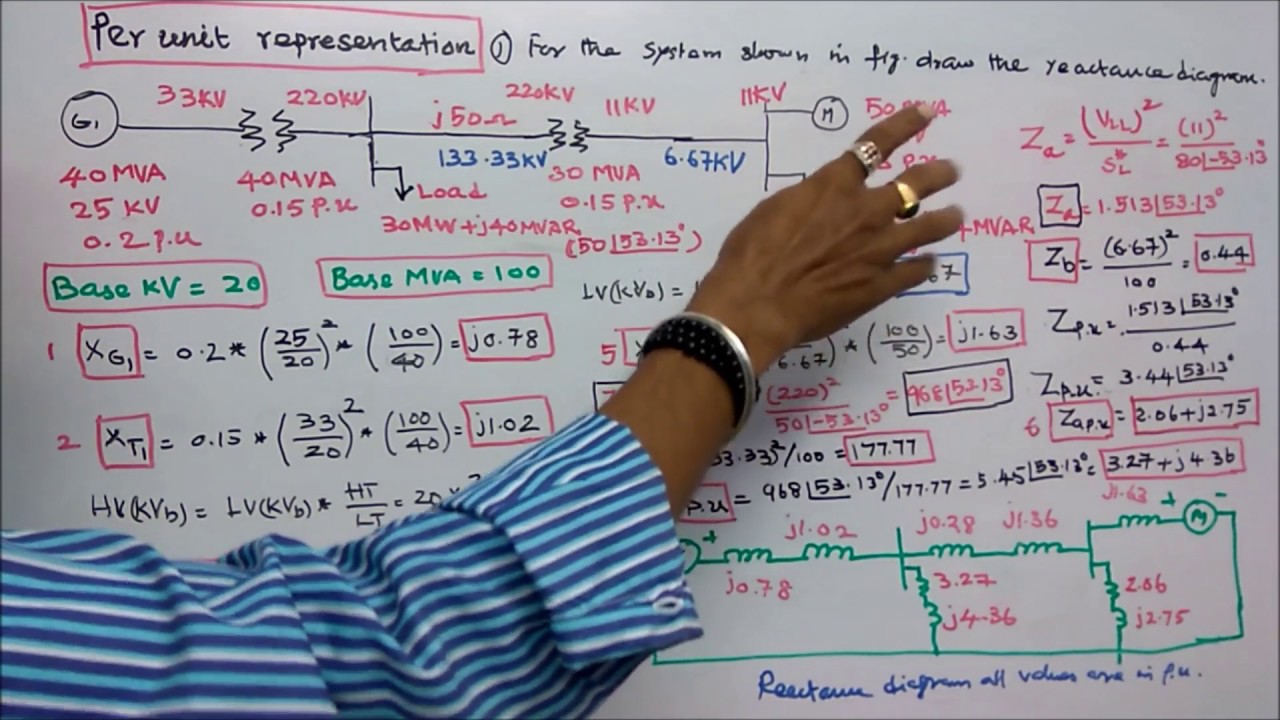 Per unit representation
1) For the system shown in fig. draw the reactance diagram.
33KV 220KV j50Ω 220KV 11KV 11KV
G1 M
133.33KV 6.67KV
40 MVA 40 MVA 30 MVA
25 KV 0.15 P.u 0.15 P.u
0.2 p.u
Load
30MW + j40MVAR
(50∠53.13°)
Base KV = 20 Base MVA = 100
1 XG1 = 0.2 * (25/20)² * (100/40) = j0.78
2 XT1 = 0.15 * (33/20)² * (100/40) = j1.02
HV(KVb) = LV(KVb) * HT/LT = 20
LV(KVb) =
5
6.67) * (100/50) = j1.63
(220)²/50∠-53.13° = 968∠53.13°
33.33)²/100 = 177.77
p.u = 968∠53.13°/177.77 = 5.45∠53.13° = 3.27 + j4.36
Za = (VLL)²/SL* = (11)²/80∠-53.13
Za = 1.513∠53.13°
MVAR
Zb = (6.67)²/100 = 0.44
Zp.u = 1.513∠53.13°/0.44
Zp.u = 3.44∠53.13°
6 Zap.u = 2.06 + j2.75
+ j0.78 j1.02 j0.28 j1.36 j1.63 + M -
3.27 2.06
j4.36 j2.75
Reactance diagram all values are in p.u.